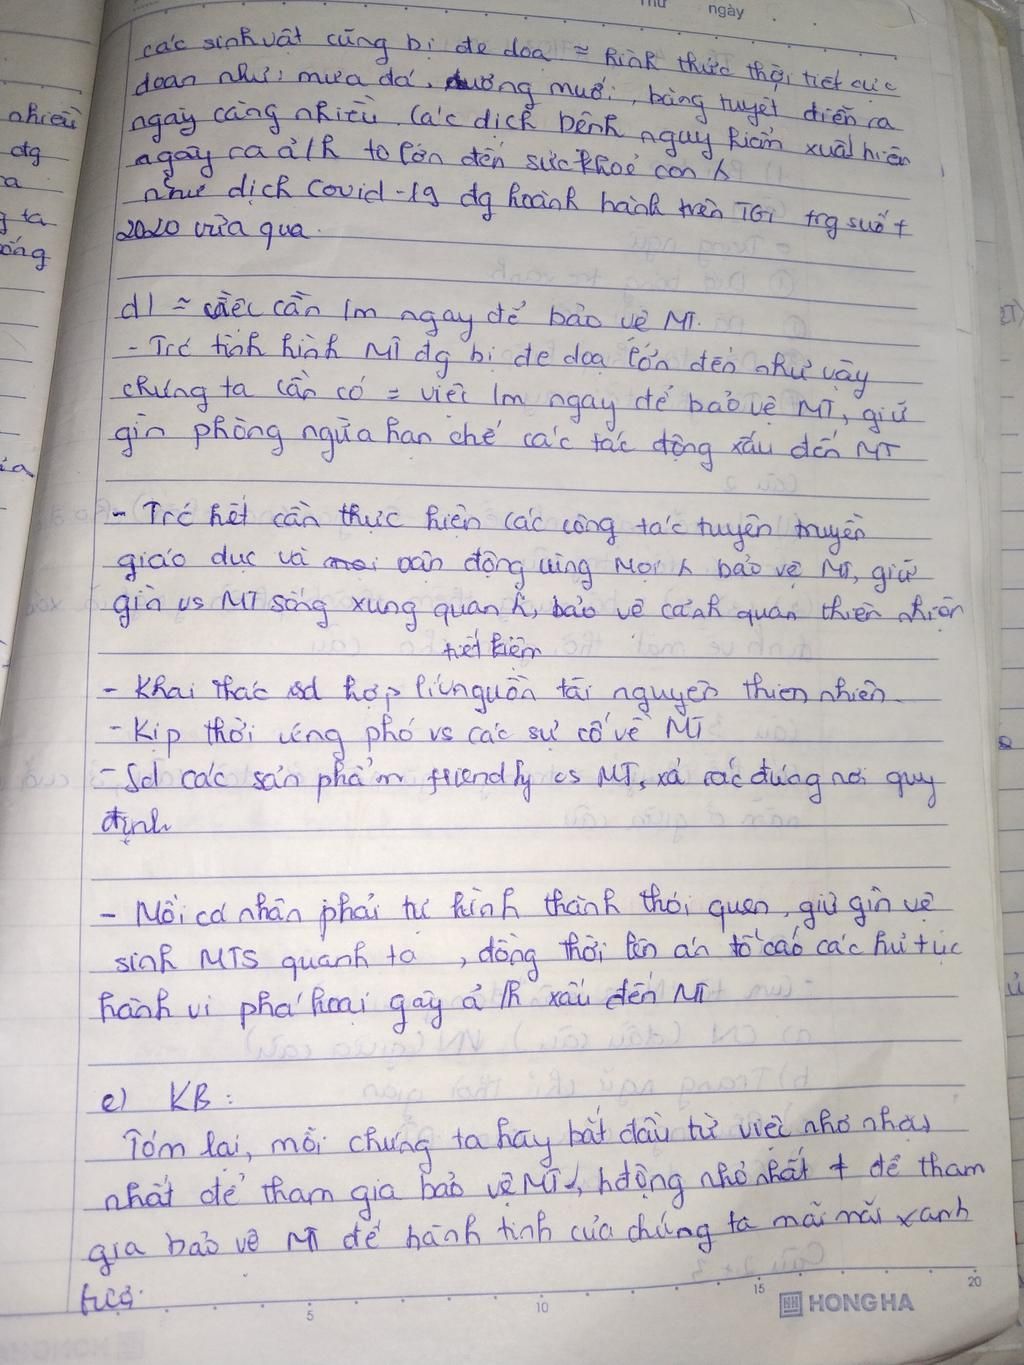 Thứ ngày
các sinh vật cũng bị đe doạ = hình thức thời tiết cực
đoan như: mưa đá, sương muối, băng tuyết diễn ra
ngày càng nhiều. Các dịch bệnh nguy hiểm xuất hiện
ngày ca ả/h to lớn đến sức khoẻ con h
như dịch covid-19 đg hoành hành trên TGi trg suốt
2020 vừa qua.
d) = việc cần lm ngay để bảo vệ MT.
- Trc tình hình MT đg bị đe doạ lớn đến như vậy
chúng ta cần có = việc lm ngay để bảo vệ MT, giữ
gìn phòng ngừa hạn chế các tác động xấu đến MT
- Trc hết cần thực hiện các công tác tuyên truyền
giáo dục và vận động cùng mọi h bảo vệ MT, giữ
gìn vs MT sống xung quanh, bảo vệ cảnh quan thiên nhiên
tiết kiệm
- Khai thác sd hợp lí nguồn tài nguyên thiên nhiên
- Kịp thời ứng phó vs các sự cố về MT
- Sd các sản phẩm friendly vs MT, xả rác đúng nơi quy
định
- Mỗi cá nhân phải tự hình thành thói quen, giữ gìn vệ
sinh MTS quanh ta, đồng thời lên án tố cáo các hủ tục
hành vi phá hoại gây ả/h xấu đến MT
e) KB:
Tóm lại, mỗi chúng ta hãy bắt đầu từ việc nhỏ nhặt
nhất để tham gia bảo vệ MT, hđộng nhỏ nhất + để tham
gia bảo vệ MT để hành tinh của chúng ta mãi mãi xanh
5 10 15 20
HONG HA
nhiều
đg
a
g ta